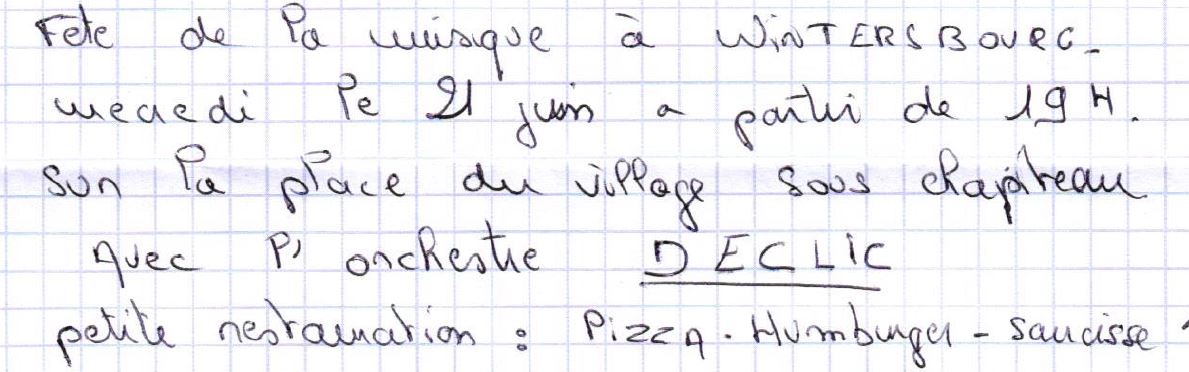 Fête de la muisque à WiNTERSBOURG-
mercredi le 21 juin a partir de 19 H.
sur la place du village sous chapiteau
Avec l'orchestre DECLIC
petite restauration : PizzA. Humburger - saucisse